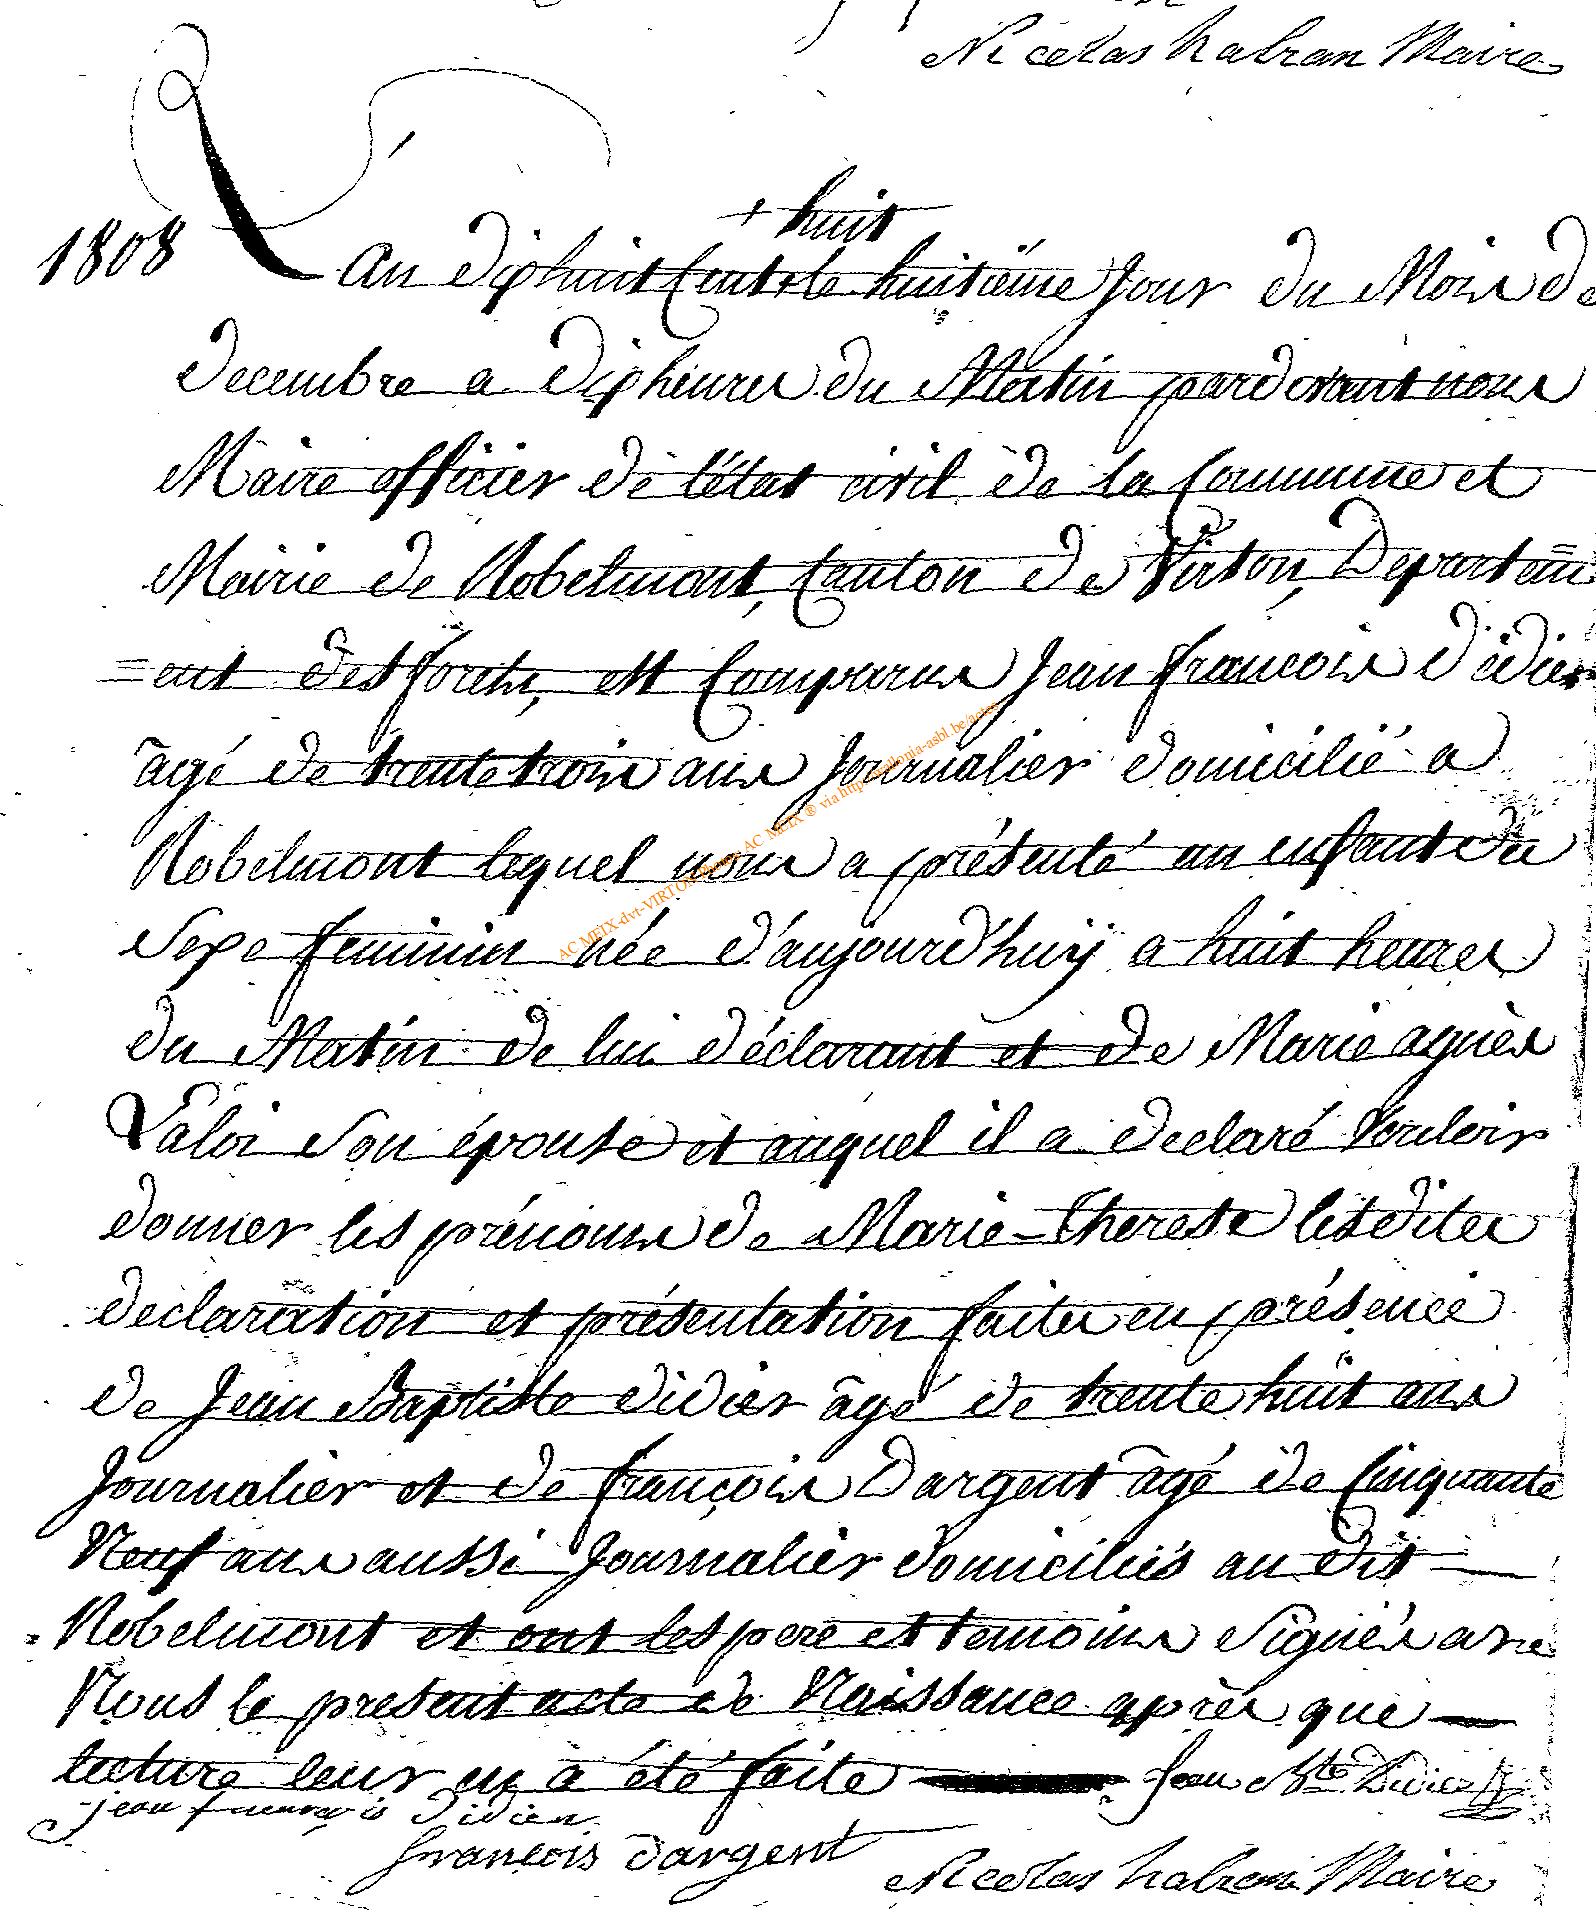 Nicolas habran Maire
+ huit
1808 L'An dixhuit Cent + le huitième Jour du Mois de
decembre a dix heures du Matin pardevant nous
Maire officier de l'état civil de la Commune et
Mairie de Robelmont, Canton de Virton, Departem
=ent des forets, est Comparus Jean francois didier
âgé de trente trois ans Journalier domicilié a
Robelmont lequel nous a présenté un enfant du
Sexe feminin née d'aujourd'huÿ a huit heures
du Matin de lui déclarant et de Marie agnès
Laloi son épouse et auquel il a declaré Vouloir
donner les prénoms de Marie-Therese lesdites
declaration et présentation faites en présence
de Jean Baptiste didier âgé de trente huit ans
Journalier et de françois Dargent âgé de Cinquante
Neuf ans aussi Journalier domiciliés au dit
Robelmont et ont les pere et temoins signés avec
Nous le present acte de Naissance après que
lecture leur en à été faite Jean Bte Didier
jean francois didier
francois dargent
Nicolas habran Maire
AC MEIX-dvt-VIRTON AC MEIX ® via http